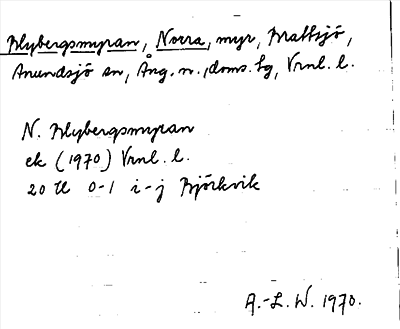 Blybergsmyran, Norra, myr, Brattsjö,
Anundsjö sn, Ång. n., doms. sg, Vrnl. l.
N. Blybergsmyran
ek (1970) Vrnl. l.
20 H 0-1 i-j Björkvik
A.-L. W. 1970.